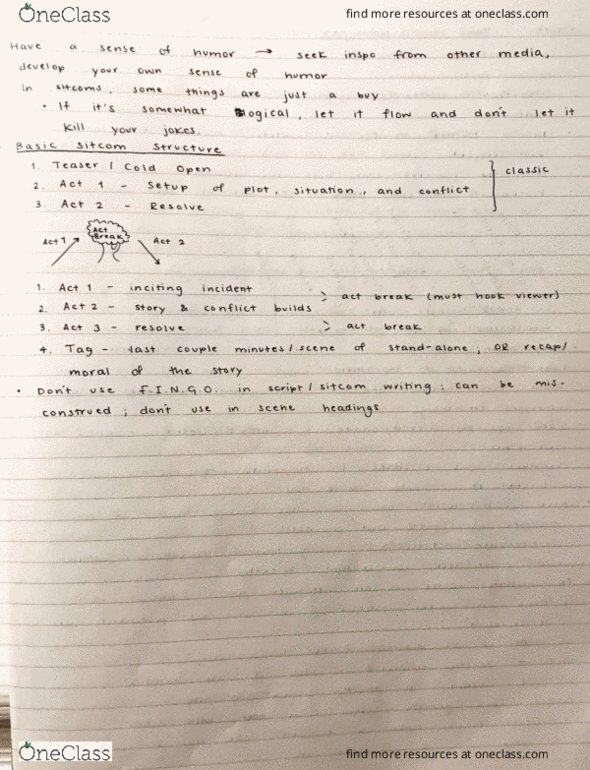 OneClass
find more resources at oneclass.com
Have a sense of humor → seek inspo from other media,
develop your own sense of humor
in sitcoms, some things are just a buy
• If it's somewhat logical, let it flow and don't let it
kill your jokes.
Basic Sitcom Structure
1. Teaser / Cold Open
2. Act 1 - Setup of plot, situation, and conflict
3. Act 2 - Resolve
} classic
Act 1
Act Break
Act 2
1. Act 1 - inciting incident
2. Act 2 - story & conflict builds
> act break (must hook viewer)
3. Act 3 - resolve > act break
4. Tag - last couple minutes/scene of stand-alone; OR recap/
moral of the story
• Don't use F.I.N.G.O. in script/sitcom writing; can be mis-
construed; don't use in scene headings
OneClass
find more resources at oneclass.com